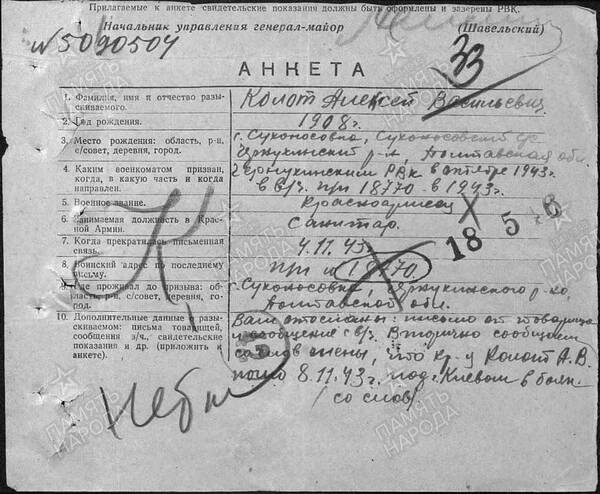 Прилагаемые к анкете свидетельские показания должны быть оформлены и заверены РВК.
Начальник управления генерал-майор (Шавельский)
№ 5090504
33
АНКЕТА
1. Фамилия, имя и отчество разыскиваемого. Колот Алексей Васильевич
2. Год рождения. 1908 г.
3. Место рождения: область, р-н, с/совет, деревня, город. с. Сухоносовка, Сухоносовский с/с
Чернухинский р-н, Полтавская обл.
4. Каким военкоматом призван, когда, в какую часть и когда направлен. Чернухинским РВК в октябре 1943 г.
в в/ч. пп 18770 в 1943 г.
5. Военное звание. Красноармеец
6. Занимаемая должность в Красной Армии. Санитар.
18 5 6
7. Когда прекратилась письменная связь. 4.11.43 г.
8. Воинский адрес по последнему письму. пп 18770.
9. Где проживал до призыва: область, р-н, с/совет, деревня, город. с. Сухоносовка, Чернухинского р-на,
Полтавской обл.
10. Дополнительные данные о разыскиваемом: письма товарищей, сообщения з/ч., свидетельские показания и др. (приложить к анкете). Вам отосланы: письмо от товарища
и сообщение с в/ч. Вторично сообщаем
со слов жены, что кр-ц Колот А.В.
8.11.43 г. под г. Киевом в боях.
/со слов/
ПАМЯТЬ НАРОДА